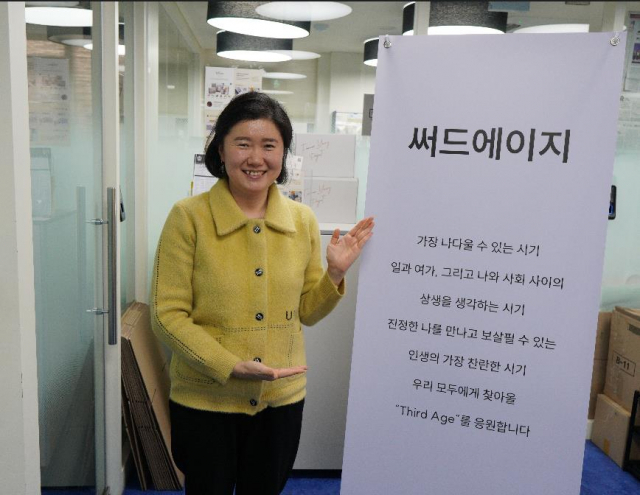 써드에이지
가장 나다울 수 있는 시기
일과 여가, 그리고 나와 사회 사이의
상생을 생각하는 시기
진정한 나를 만나고 보살필 수 있는
인생의 가장 찬란한 시기
우리 모두에게 찾아올
"Third Age"를 응원합니다
U